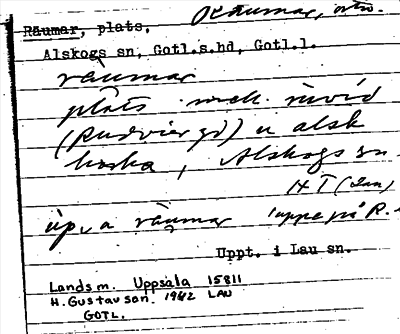 Räumar, plats.
Alskogs sn, Gotl.s.hd, Gotl.l.
räumar
plats
(Rudvier gd) u alsk
, Alskogs sn
HT (Lau)
up, a räumar uppe på R.
Uppt. i Lau sn.
Landsm. Uppsala 15811
H. Gustavson. 1942 LAU
GOTL.